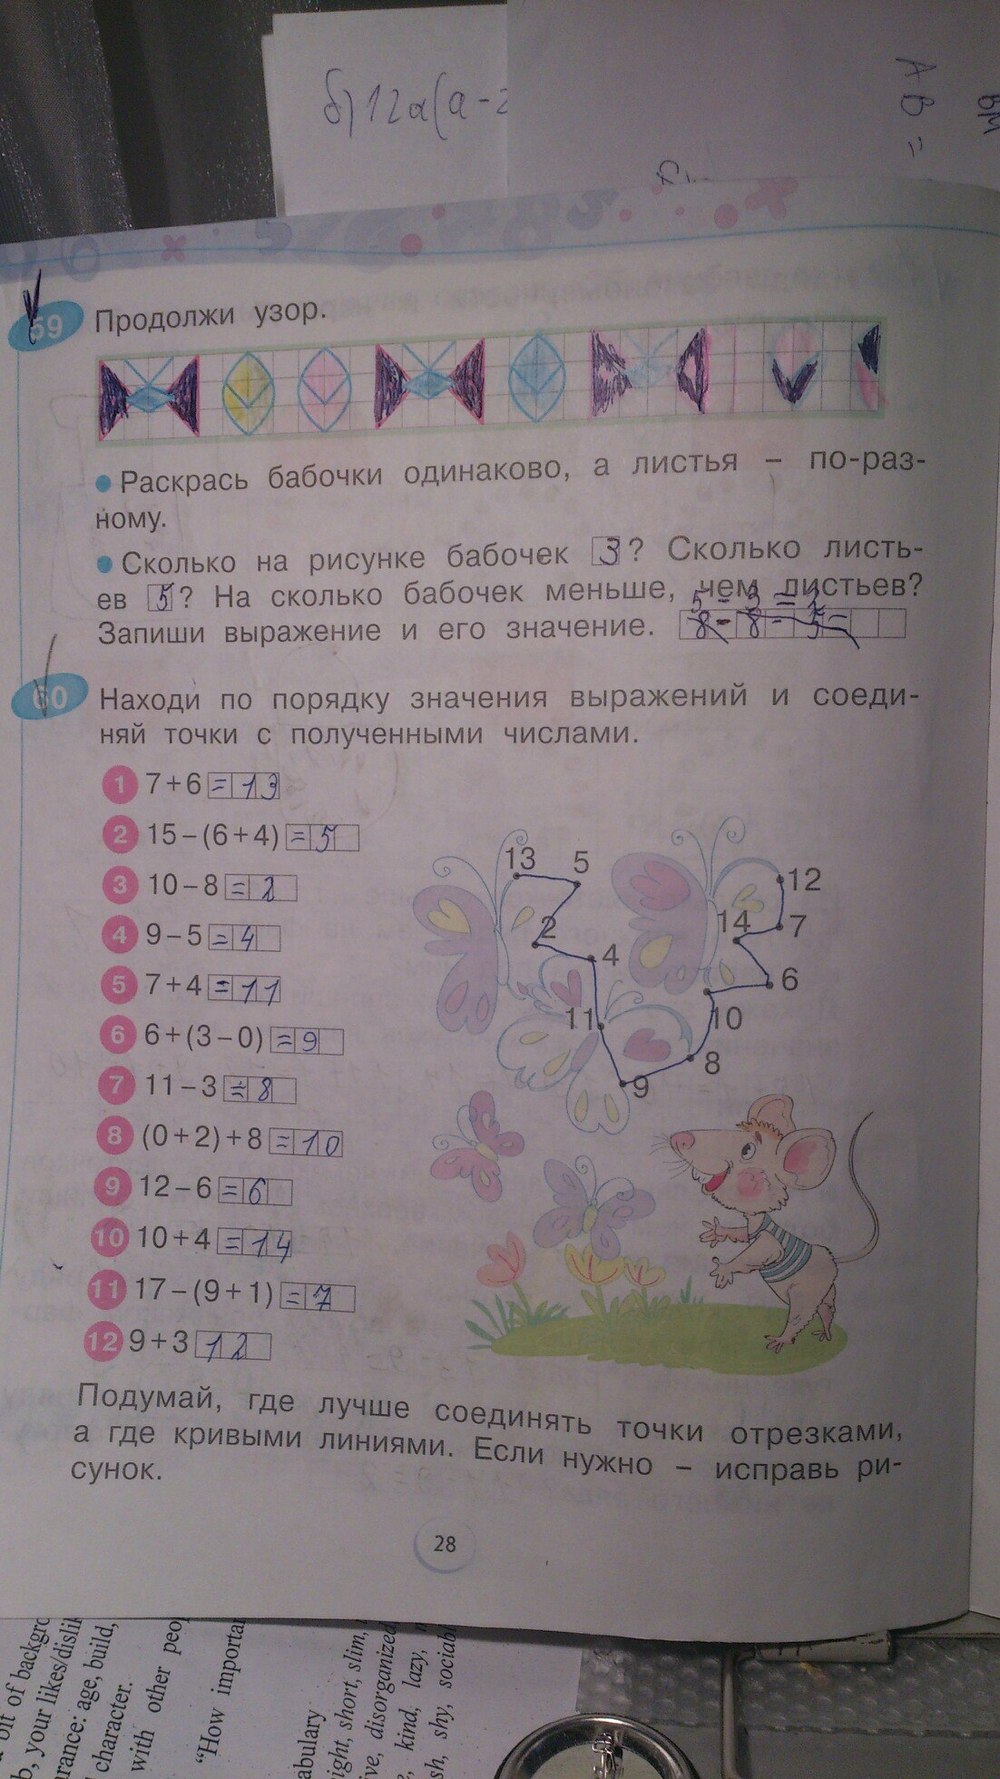 б) 12a(a-2
A B =
вм
59 Продолжи узор.
• Раскрась бабочки одинаково, а листья – по-раз-
ному.
• Сколько на рисунке бабочек 3? Сколько листь-
ев 5? На сколько бабочек меньше, чем листьев?
5 - 3 = 2
Запиши выражение и его значение. 8 - 8 - 5 =
60 Находи по порядку значения выражений и соеди-
няй точки с полученными числами.
1 7+6 =13
2 15–(6+4) =5
3 10–8 =2
4 9–5 =4
5 7+4 =11
6 6+(3–0) =9
7 11–3 =8
8 (0+2)+8 =10
9 12–6 =6
10 10+4 =14
11 17–(9+1) =7
12 9+3 12
13 5 12
2 14 7
4 6
11 10
8
9
Подумай, где лучше соединять точки отрезками,
а где кривыми линиями. Если нужно – исправь ри-
сунок.
28
bit of backgro
b, your likes/dislik
arance: age, build,
character.
with other peop
"How importan
abulary
ight, short, slim,
ive, disorganized
, kind, lazy,
sh, shy, sociab